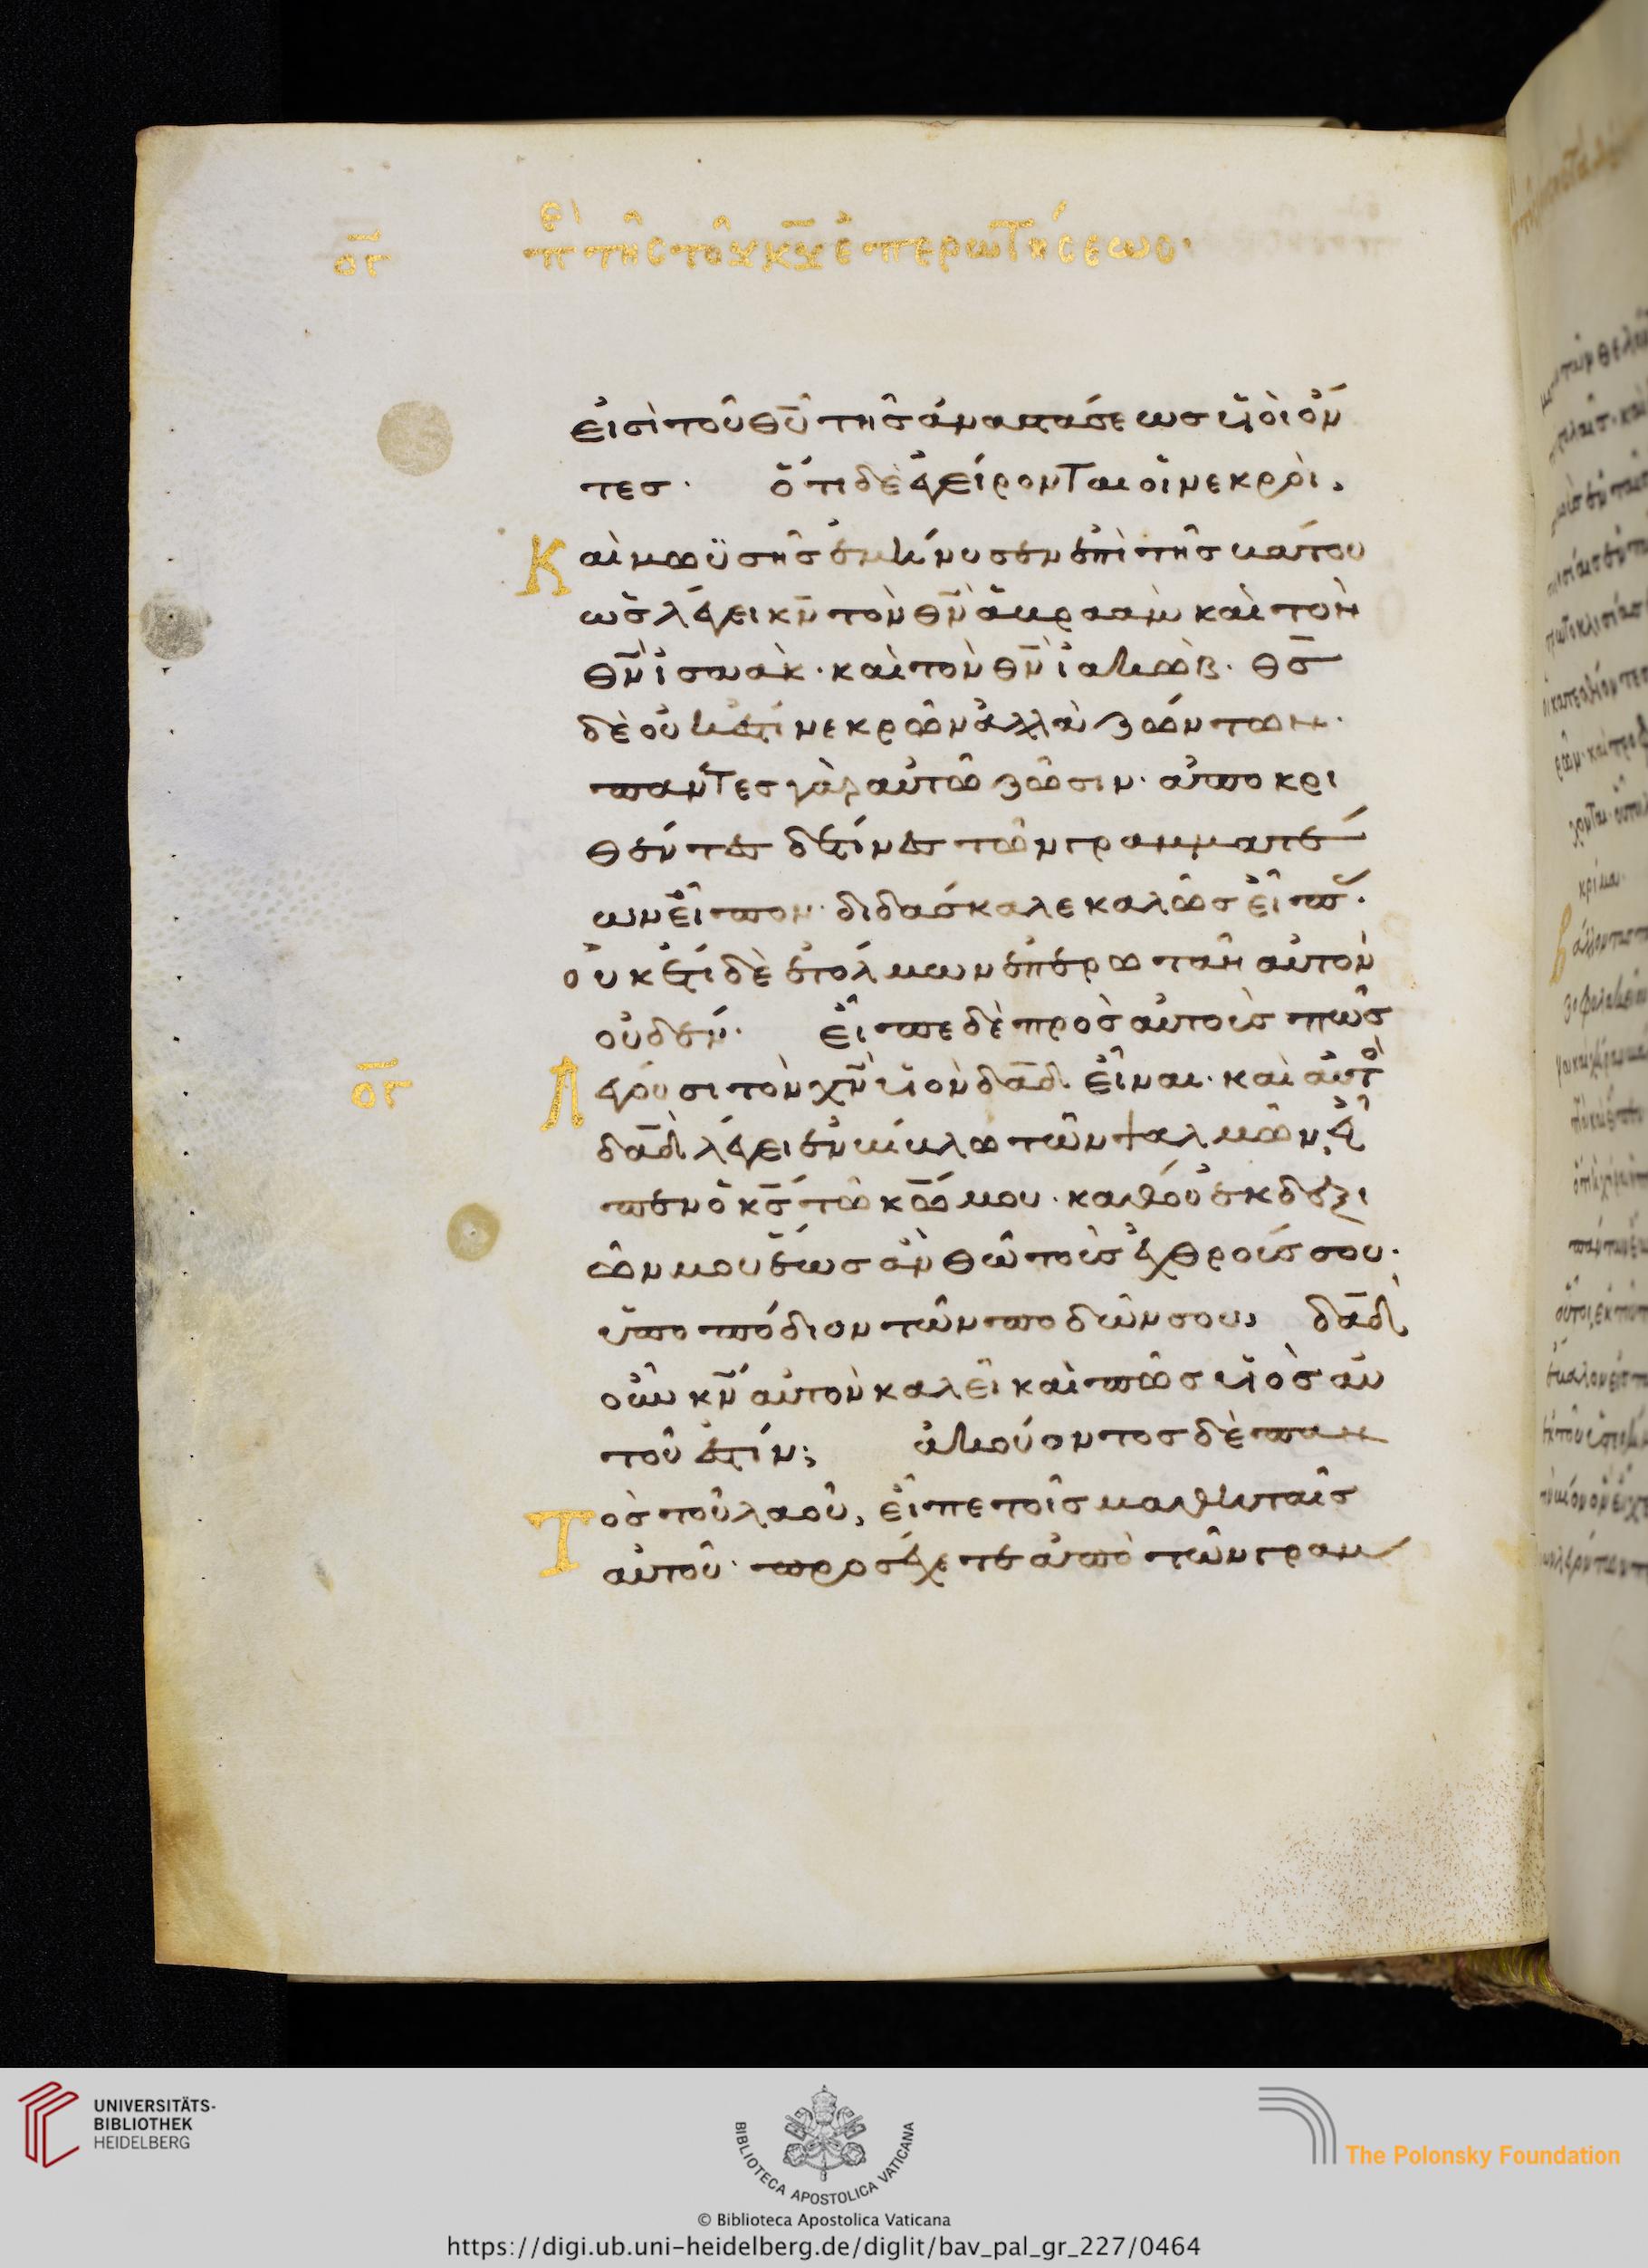 ογ περὶ τῆς τοῦ κ̅υ̅ ἐπερωτήσεως·
εἰσὶ τοῦ θ̅υ̅ τῆς ἀναστάσεως υἱοὶ ὄν
τες· ὅτι δὲ ἐγείρονται οἱ νεκροὶ,
Καὶ μωϋσῆς ἐμήνυσεν ἐπὶ τῆς βάτου
ὡς λέγει κ̅ν̅ τὸν θ̅ν̅ ἀβρααμ καὶ τὸν
θ̅ν̅ ἰσαακ· καὶ τὸν θ̅ν̅ ἰακωβ· θ̅ς̅
δὲ οὐκ ἔστι νεκρῶν ἀλλὰ ζώντων·
παντες γὰρ αὐτῶ ζῶσιν· ἀποκρι
θέντες δέ τινες τῶν γραμματέ
ων εἶπον· διδάσκαλε καλῶς εἶπας·
οὐκέτι δὲ ἐτόλμων ἐπερωτᾶν αὐτὸν
οὐδέν· εἶπε δὲ πρὸς αὐτοὺς πῶς
ογ Λέγουσι τὸν χ̅ν̅ υἱὸν δ̅α̅δ̅ εἶναι· καὶ αὐτὸς
δ̅α̅δ̅ λέγει ἐν βίβλω τῶν ψαλμῶν, εἶ
πεν ὁ κ̅ς̅ τῶ κ̅ω̅ μου· κάθου ἐκ δεξι
ῶν μου ἕως ἂν θῶ τοὺς ἐχθρούς σου·
ὑποπόδιον τῶν ποδῶν σου, δ̅α̅δ̅
οὖν κ̅ν̅ αὐτὸν καλεῖ καὶ πῶς υἱὸς αὐ
τοῦ ἐστίν; ἀκούοντος δὲ παν
Τὸς τοῦ λαοῦ, εἶπε τοῖς μαθηταῖς
αὐτοῦ· προσέχετε ἀπὸ τῶν γραμ
UNIVERSITÄTS-
BIBLIOTHEK
HEIDELBERG
BIBLIOTECA APOSTOLICA VATICANA
The Polonsky Foundation
© Biblioteca Apostolica Vaticana
https://digi.ub.uni-heidelberg.de/diglit/bav_pal_gr_227/0464